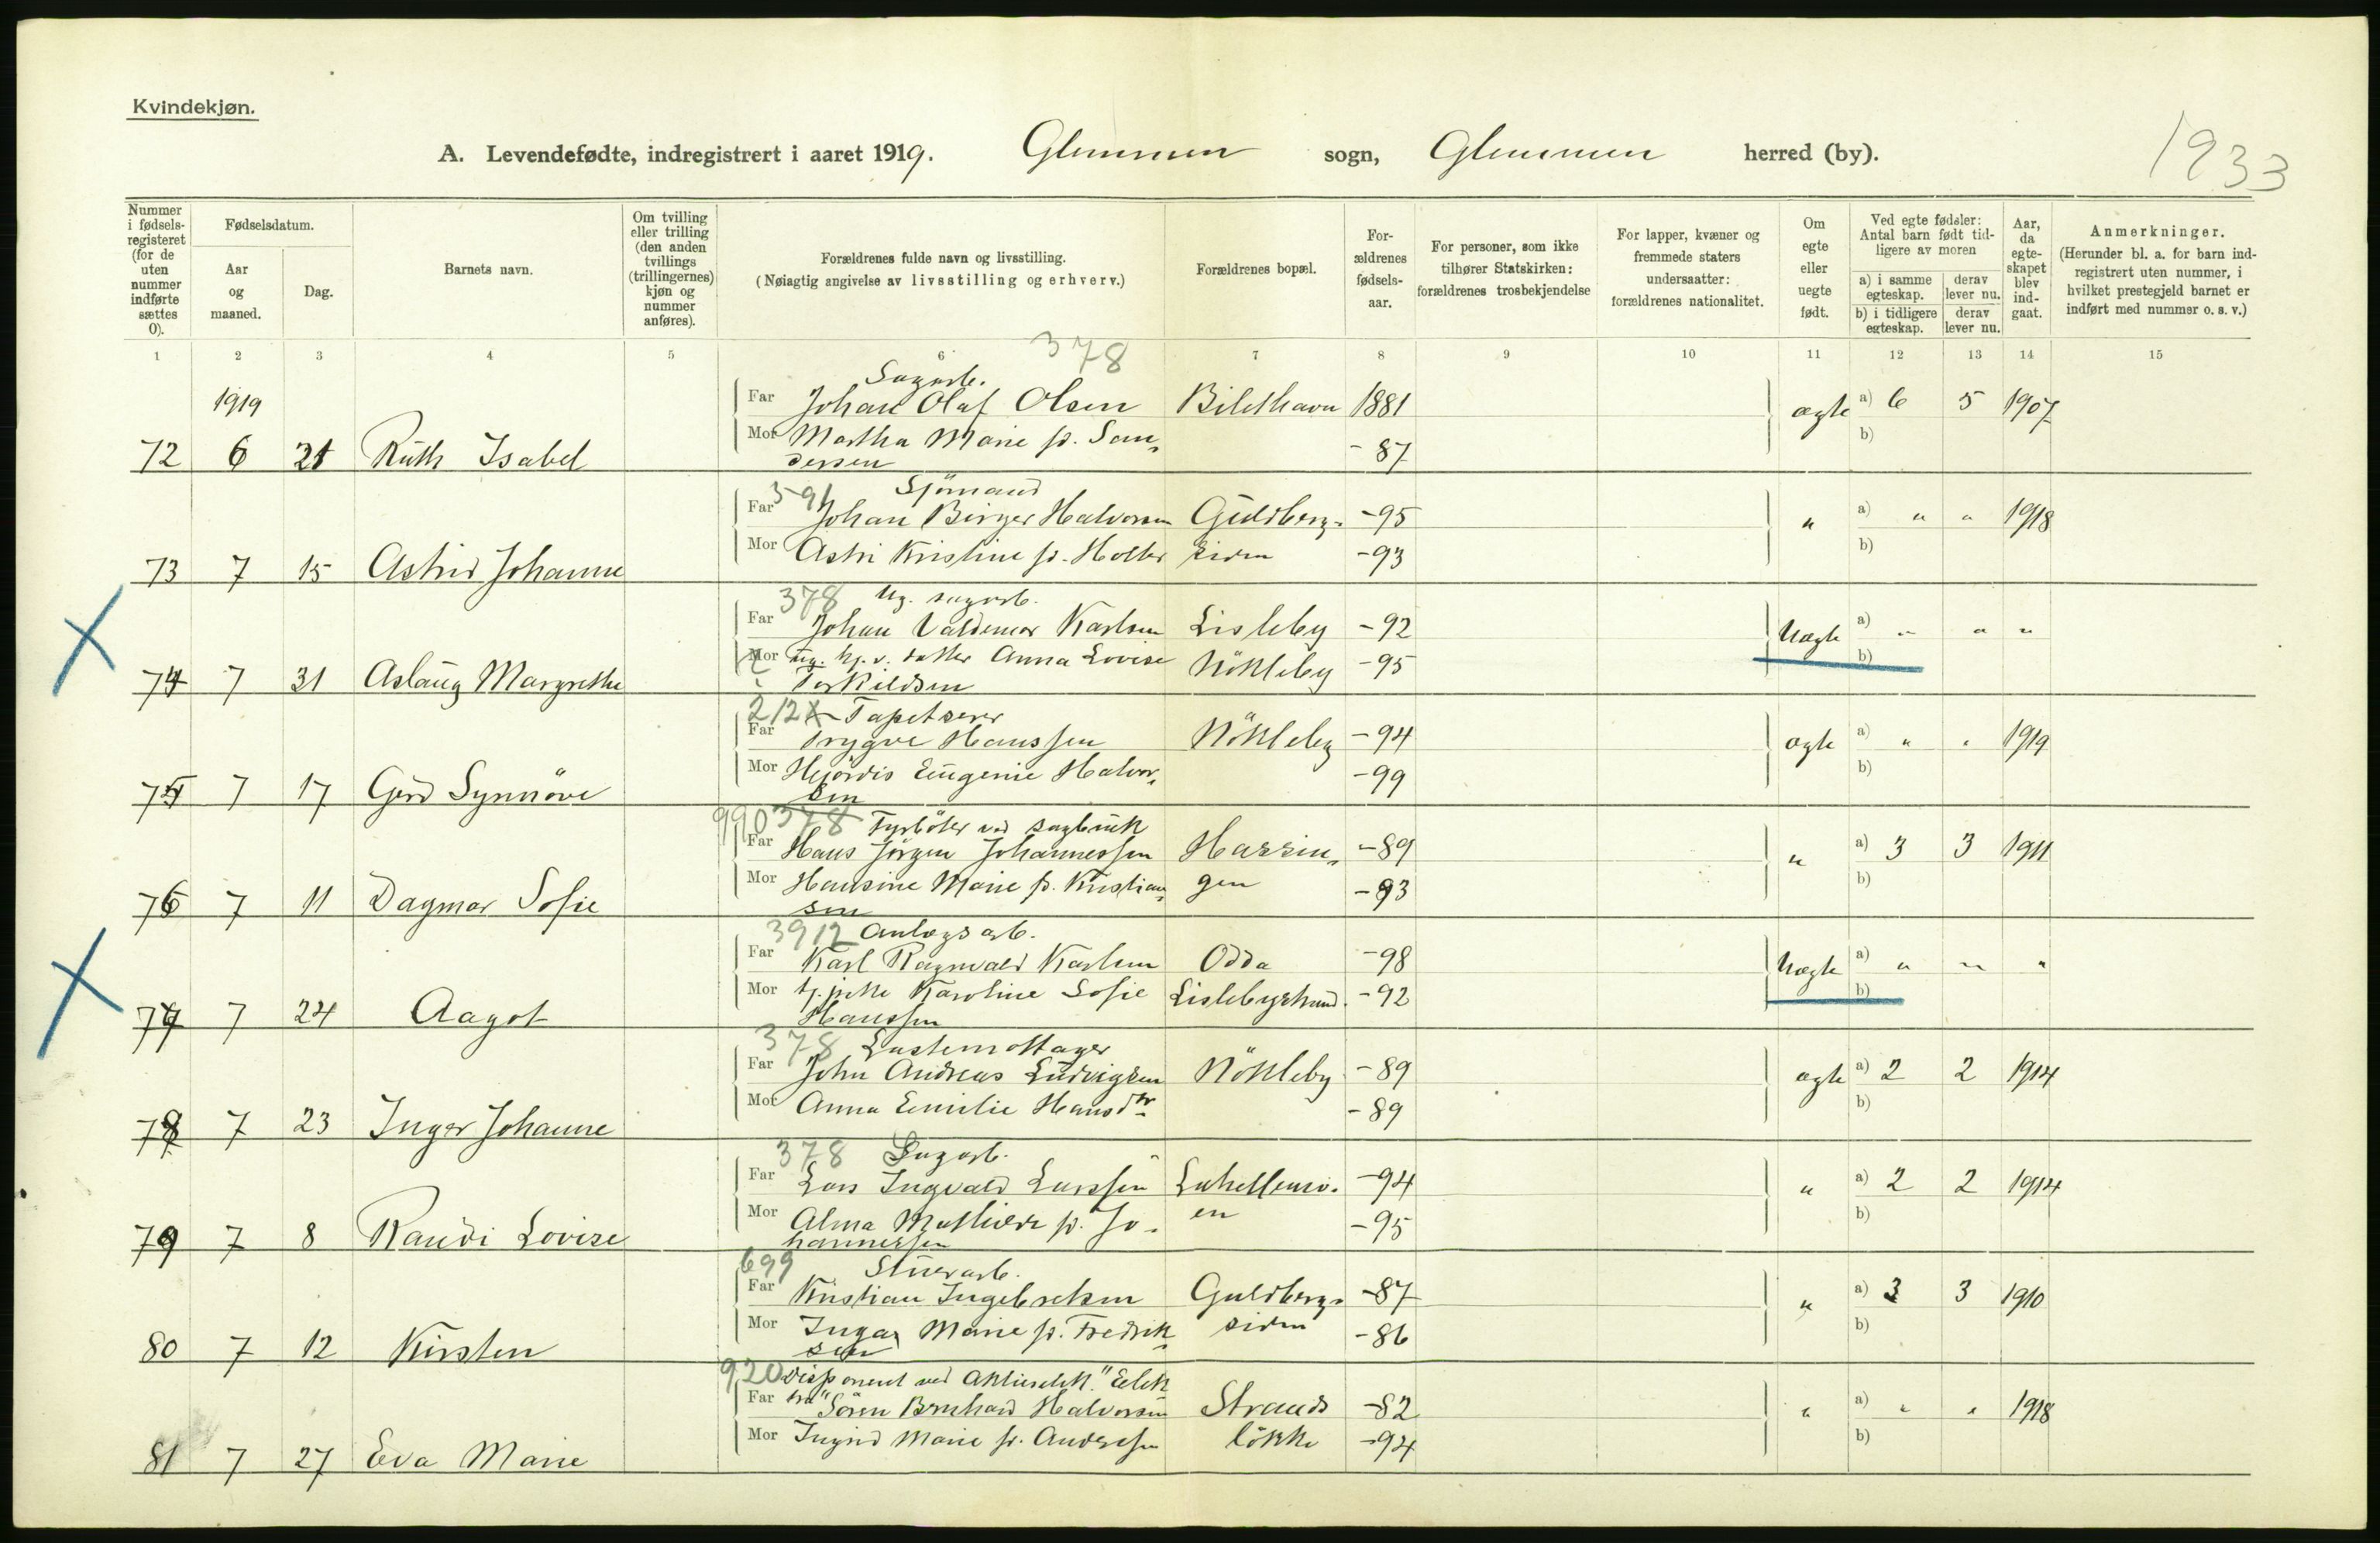 Kvindekjøn.
A. Levendefødte, indregistrert i aaret 1919. Glemmen sogn, Glemmen herred (by).
1933
Nummer i fødsels-registeret (for de uten nummer indførte sættes 0).
Fødselsdatum.
Aar og maaned.
Dag.
Barnets navn.
Om tvilling eller trilling (den anden tvillings (trillingernes) kjøn og nummer anføres).
Forældrenes fulde navn og livsstilling.
(Nøiagtig angivelse av livsstilling og erhverv.)
Forældrenes bopæl.
For-ældrenes fødsels-aar.
For personer, som ikke tilhører Statskirken: forældrenes trosbekjendelse
For lapper, kvæner og fremmede staters undersaatter: forældrenes nationalitet.
Om egte eller uegte født.
Ved egte fødsler: Antal barn født tid-ligere av moren
a) i samme egteskap. derav lever nu.
b) i tidligere egteskap. derav lever nu.
Aar, da egte-skapet blev ind-gaat.
Anmerkninger.
(Herunder bl. a. for barn ind-registrert uten nummer, i hvilket prestegjeld barnet er indført med nummer o. s. v.)
1 2 3 4 5 6 7 8 9 10 11 12 13 14 15
378
Sagarb.
1919 Far Johan Olaf Olsen Bilethavn 1881 ægte a) 6 5 1907
Mor Martha Marie f. Sam- b)
72 6 21 Ruth Isabel dersen - 87
591 Sjömand
Far Johan Birger Halvorsen Guldbergs- -95 " a) " " 1918
Mor Astri Kristine f. Holter siden -93 b)
73 7 15 Astrid Johanne
378 Ug. sagarb.
Far Johan Valdemar Karlsen Lisleby -92 Uægte a) " " "
Mor ug. hj. v. datter Anna Lovise Nökleby -95 b)
74 7 31 Aslaug Margrethe Torkildsen
212 Tapetserer
Far Trygve Hanssen Nökleby -94 ægte a) " " 1919
Mor Hjördis Eugenie Halvor- -99 b)
75 7 17 Gerd Synnöve sen
990 378 Fyrböter ved sagbruk
Far Hans Jörgen Johannessen Hassin- -89 " a) 3 3 1911
Mor Hansine Marie f. Kristian- gen -93 b)
76 7 11 Dagmar Sofie sen
3912 Anlægsarb.
Far Karl Ragnvald Karlsen Odda -98 Uægte a) " " "
Mor tj.pike Karoline Sofie Lislebystrand. -92 b)
77 7 24 Aagot Hanssen
378 Lastemottager
Far John Andreas Ludvigsen Nökleby -89 ægte a) 2 2 1914
Mor Anna Emilie Hansdtr -89 b)
78 7 23 Inger Johanne
378 Sagarb.
Far Lars Ingvald Larssen -94 " a) 2 2 1914
Mor Alma Mathilde f. Jo- en -95 b)
79 7 8 Randi Lovise hannessen
699 Stuerarb.
Far Kristian Ingebretsen Guldbergs- -87 " a) 3 3 1910
Mor Inga Marie f. Fredrik- siden -86 b)
80 7 12 Kirsten sen
920 Disponent ved Aktieselsk. "Elek
Far tra" Sören Bernhard Halvorsen Strands -82 " a) " " 1918
Mor Ingrid Marie f. Andresen lökke -94 b)
81 7 27 Eva Marie